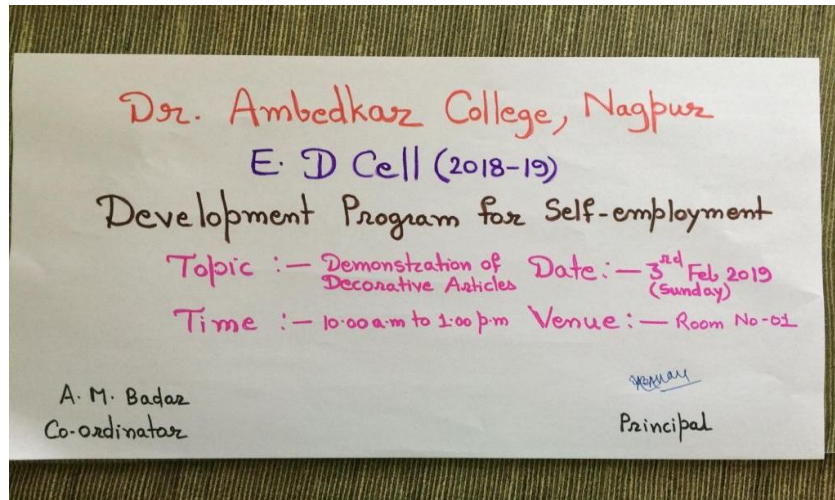 Dr. Ambedkar College, Nagpur
E. D Cell (2018-19)
Development Program for Self-employment
Topic :- Demonstration of Decorative Articles
Date :- 3rd Feb 2019 (Sunday)
Time :- 10.00 a.m to 1.00 p.m
Venue :- Room No-01
A. M. Badar
Co-ordinator
Principal